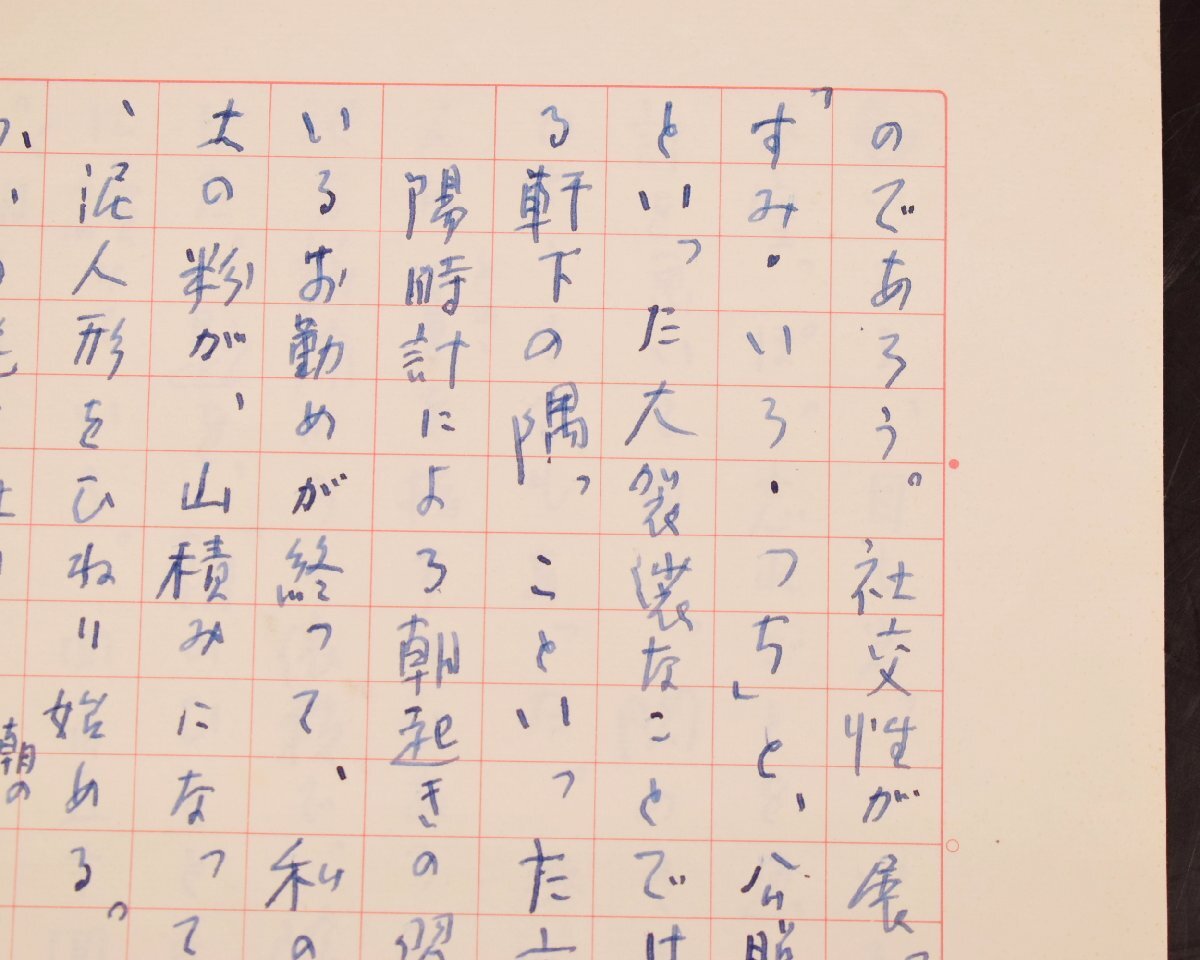 のであろう。社交性が展
「すみ・いろ・つち」と、公
といった大袈裟なことでは
る軒下の隅っこといった
陽時計による朝起きの習
いるお勤めが終って、私の
土の粉が、山積みになって
、泥人形をひねり始める。
朝の